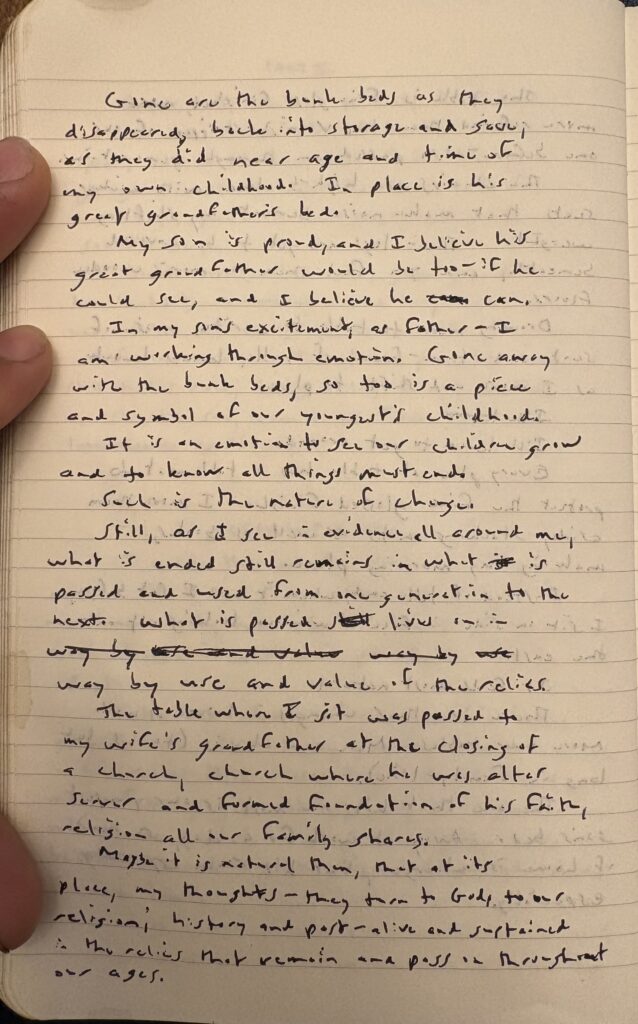 Gone are the bunk beds as they
disappeared, back into storage and save,
as they did near age and time of
my own childhood. In place is his
great grandfather's bed.
My son is proud, and I believe his
great grandfather would be too – if he
could see, and I believe he can.
In my son's excitement, as father – I
am working through emotion. Gone away
with the bunk beds, so too is a piece
and symbol of our youngest's childhood.
It is an emotion to see our children grow
and to know all things must end.
Such is the nature of change.
Still, as I see in evidence all around me,
what is ended still remains in what is
passed and used from one generation to the
next. What is passed lives on in
way by use and value way by use
way by use and value of the relics.
The table where I sit was passed to
my wife's grandfather at the closing of
a church, church where he was alter
server and formed foundation of his faith,
religion all our family shares.
Maybe it is natural then, that at its
place, my thoughts – they turn to God, to our
religion; history and past – alive and sustained
in the relics that remain and pass on throughout
our ages.